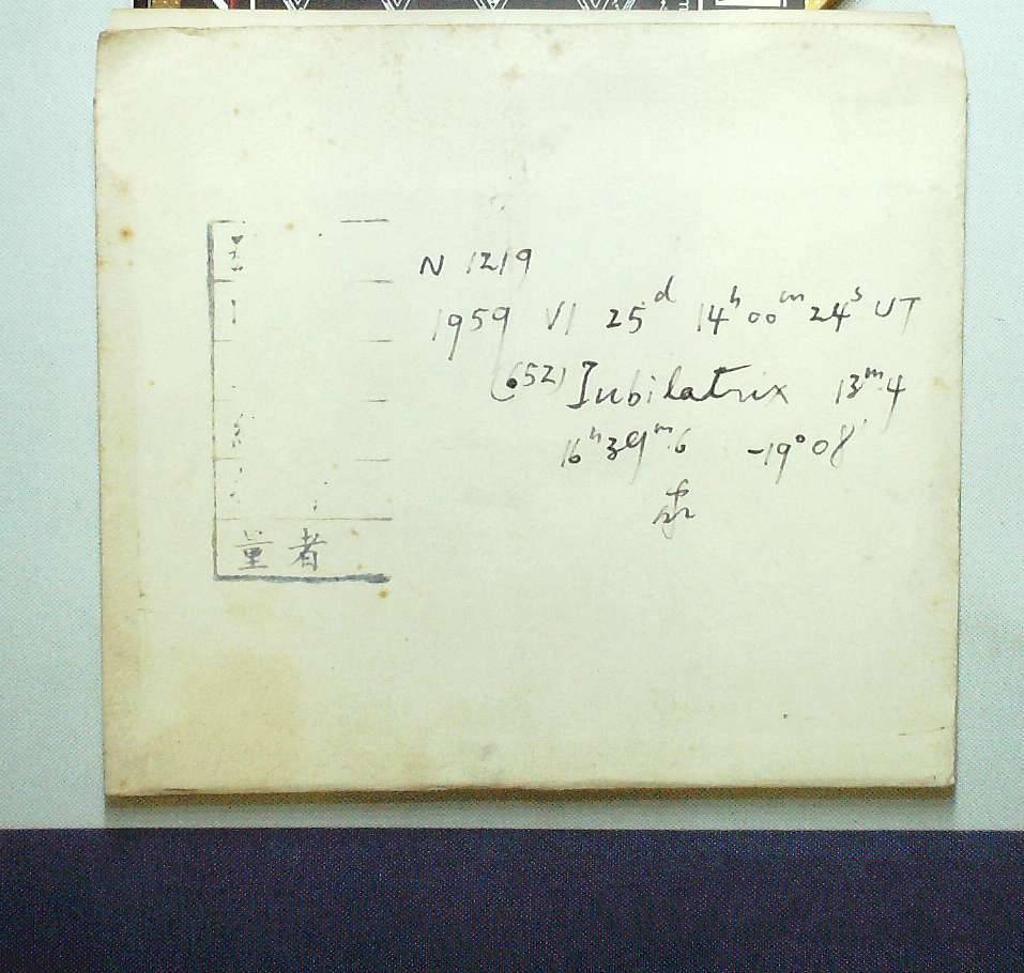 N 1219
1959 VI 25.ᵈ 14ʰ 00ᵐ 24ˢ UT
(652) Iubilatrix 13ᵐ.4
16ʰ 39ᵐ.6 -19°08′
量者